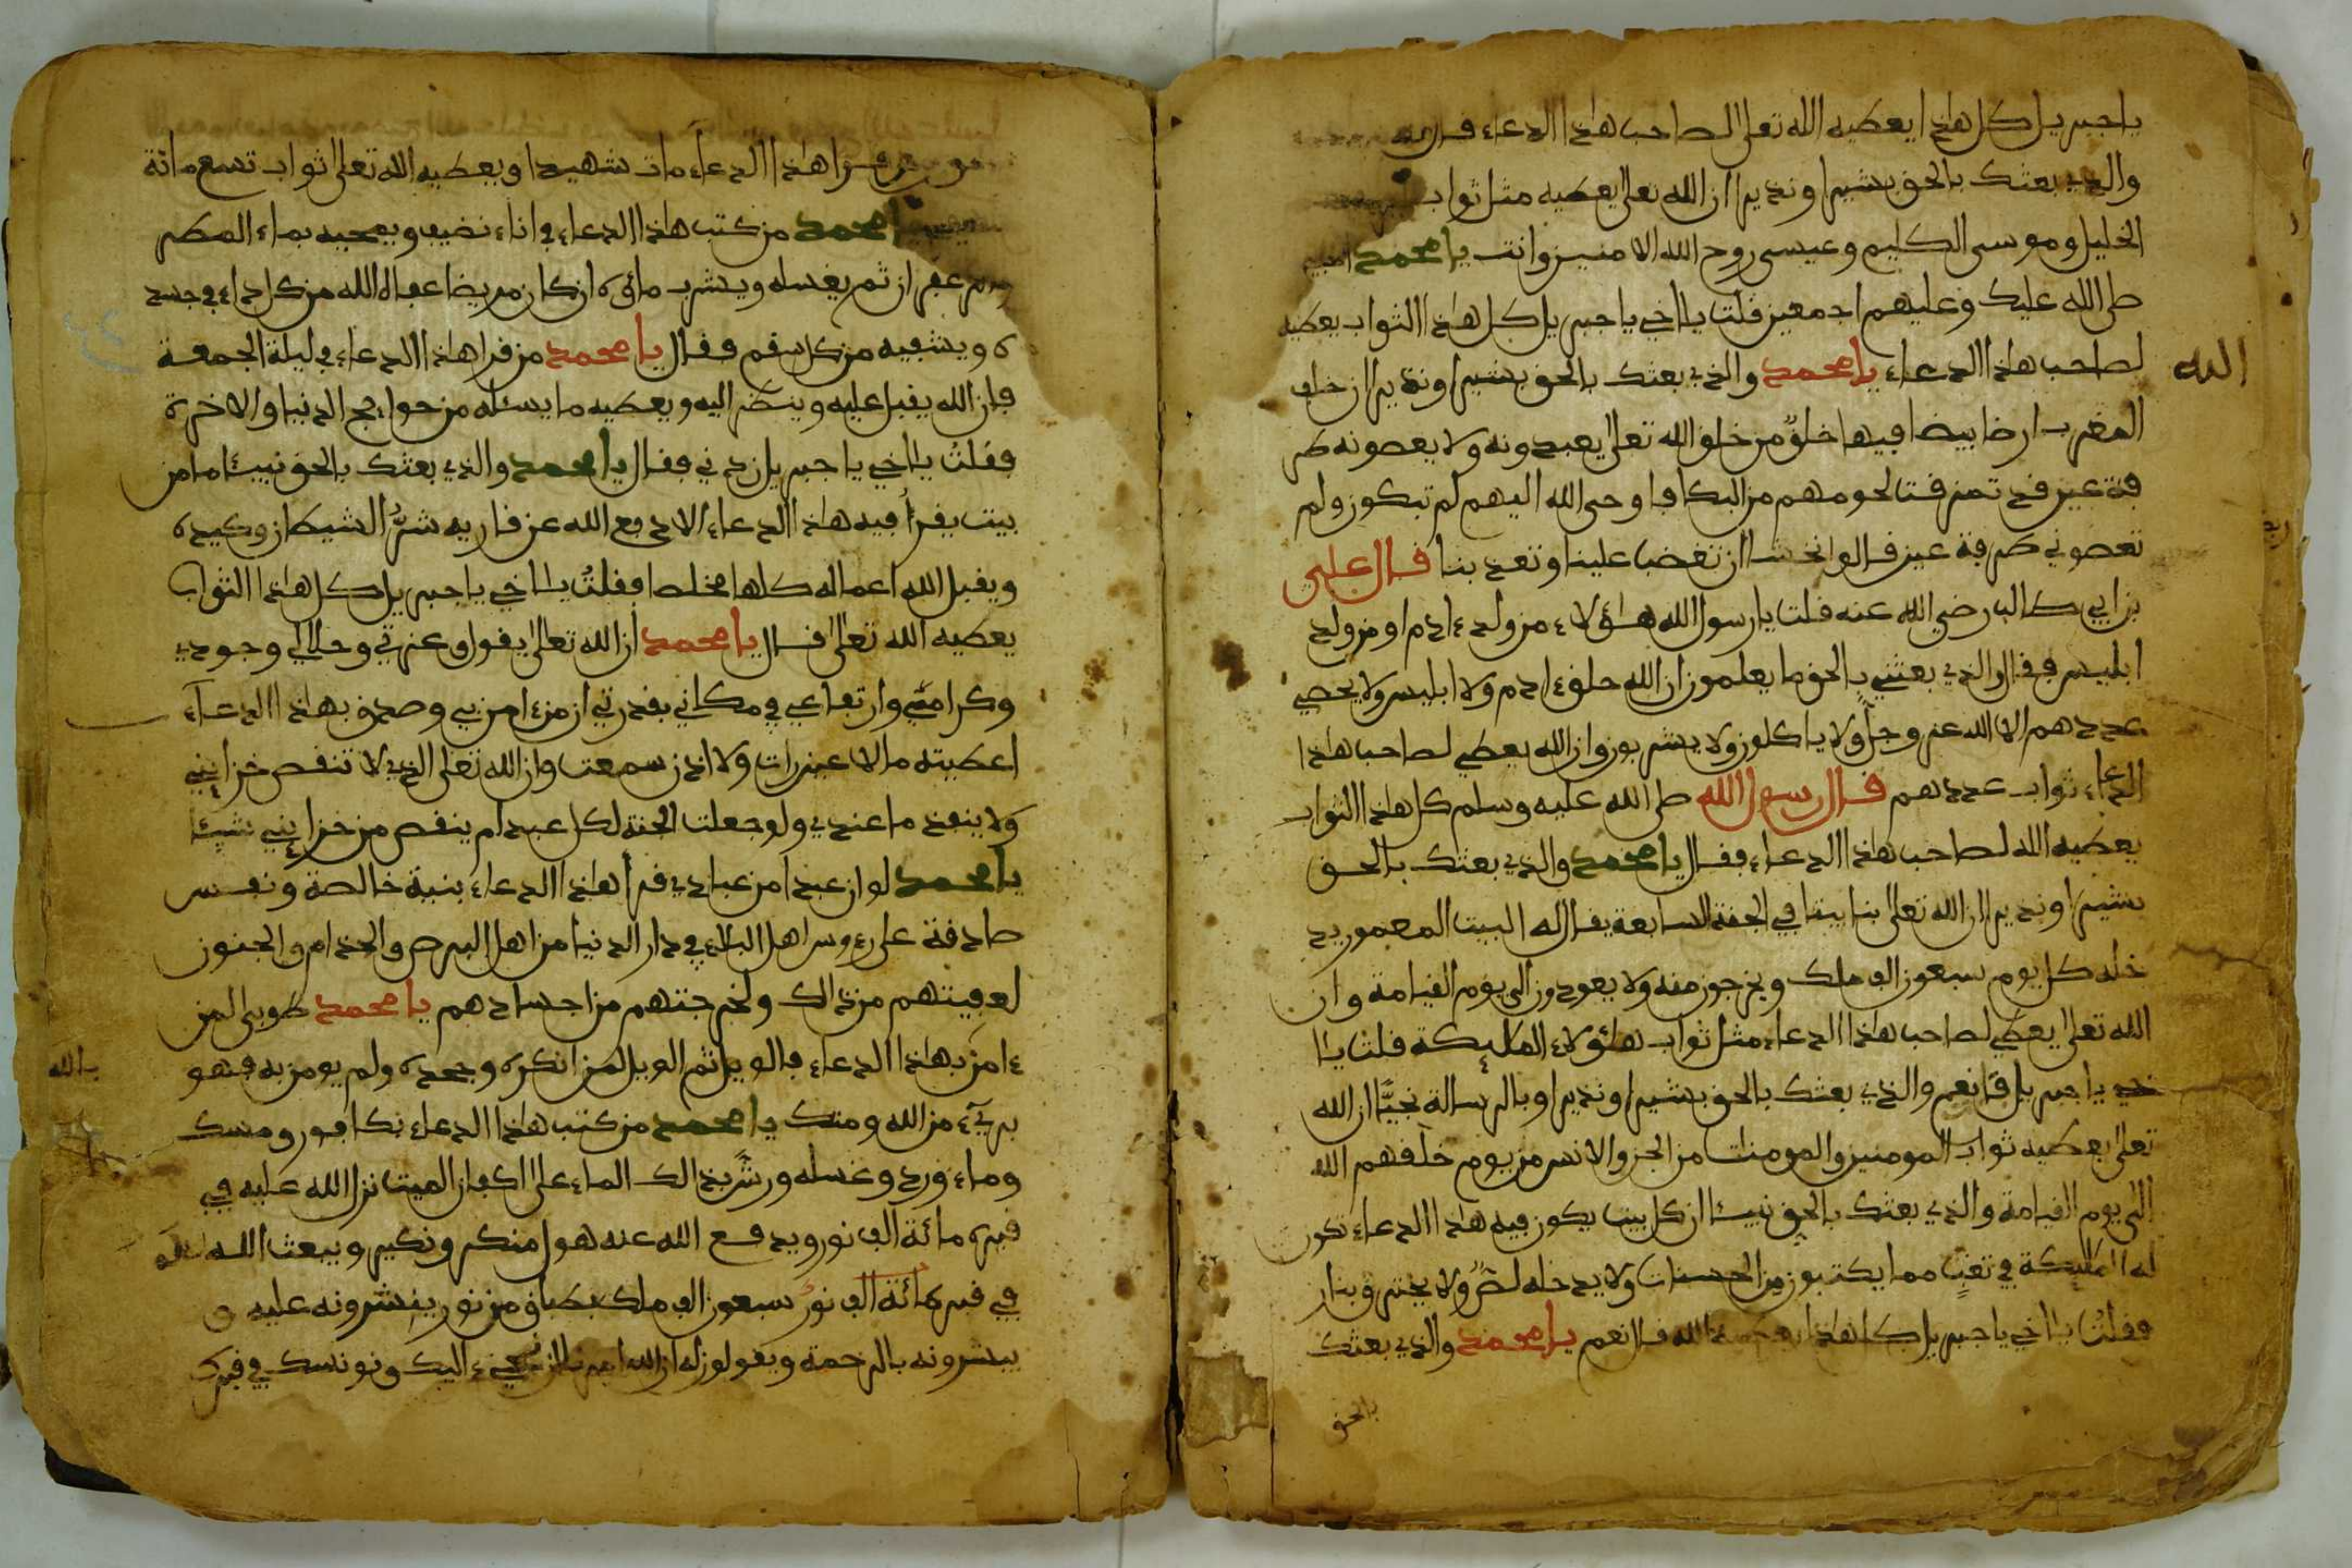 يا جبريل كل هاذا يعطيه الله تعلى لصاحب هاذا الدعاء قال
والذي بعثك بالحق بشيرا ونذيرا ان الله تعلى يعطيه مثل ثواب
الخليل وموسى الكليم وعيسى روح الله الامنين وانت يا محمد
صلى الله عليك وعليهم اجمعين قلت يا اخي يا جبريل كل هاذا الثواب يعطيه
الله
لصاحب هاذا الدعاء يا محمد والذي بعثك بالحق بشيرا ونذيرا ان خلف
المغرب ارضا بيضا فيها خلق من خلق الله تعلى يعبدونه ولا يعصونه طر
فة عين قد تمزقت لحومهم من البكا فاوحى الله اليهم لم تبكون ولم
تعصوني طرفة عين قالوا نخشا ان تغضب علينا وتعذبنا قال علي
بن ابي طالب رضي الله عنه قلت يا رسول الله هاؤلاء من ولد ءادم او من ولد
ابليس فقال والذي بعثني بالحق ما يعلمون ان الله خلق ءادم ولا ابليس ولا يحصي
عددهم الا الله عز وجل ولا ياكلون ولا يشربون وان الله يعطي لصاحب هاذا
الدعاء ثواب عددهم قال رسول الله صلى الله عليه وسلم كل هاذا الثواب
يعطيه الله لصاحب هاذا الدعاء فقال يا محمد والذي بعثك بالحق
بشيرا ونذيرا ان الله تعلى بنا بيتا في الجنة السابعة يقال له البيت المعمور يد
خله كل يوم سبعون الف ملك ويخرجون منه ولا يعودون الى يوم القيامة وان
الله تعلى يعطي لصاحب هاذا الدعاء مثل ثواب هاؤلاء الملايكة قلت يا ا
خي يا جبريل قا نعم والذي بعثك بالحق بشيرا ونذيرا وبالرسالة نجيا ان الله
تعلى يعطيه ثواب المومنين والمومنات من الجن والانس من يوم خلقهم الله
الى يوم القيامة والذي بعثك بالحق نبيئا ان كل بيت يكون فيه هاذا الدعاء تكون
له الملايكة في تعب مما يكتبون من الحسنات ولا يدخله لص ولا يحترق بنار
فقلت يا اخي يا جبريل كل هاذا يعطيه الله قال نعم يا محمد والذي بعثك
بالحق
من قرا هاذا الدعاء مات شهيدا ويعطيه الله تعلى ثواب تسعمائة
يا محمد من كتب هاذا الدعاء في اناء نضيف ويمحيه بماء المطر
وزعفران ثم يغسله ويشرب مائه ان كان مريضا عافاه الله من كل داء في جسد
ه ويشفيه من كل سقم فقال يا محمد من قرا هاذا الدعاء في ليلة الجمعة
فان الله يقبل عليه وينضر اليه ويعطيه ما يسئله من حوايج الدنيا والاخرة
فقلت يا اخي يا جبريل زدني فقال يا محمد والذي بعثك بالحق نبيئا ما من
بيت يقرأ فيه هاذا الدعاء الا دفع الله عن قاريه شر الشيطان وكيده
ويقبل الله اعماله كلها مخلصا فقلت يا اخي يا جبريل كل هاذا الثواب
يعطيه الله تعلى قال يا محمد ان الله تعلى يقول وعزتي وجلالي وجودي
وكرامتي وارتفاعي في مكاني بقدرتي ان من ءامن بي وصدق بهاذا الدعاء
اعطيته ما لا عين رات ولا اذن سمعت وان الله تعلى الذي لا تنقص خزايني
ولا ينفذ ما عندي ولو جعلت الجنة لكل عبد لم ينقص من خزايني شيئا
يا محمد لو ان عبدا من عبادي قرأ هاذا الدعاء بنية خالصة ونفس
صادقة على رءوس اهل البلاء في دار الدنيا من اهل البرص والجذام والجنون
لعفيتهم من ذالك ولخرجتهم من اجسادهم يا محمد طوبى لمن
ءامن بهاذا الدعاء فالويل ثم الويل لمن انكره وجحده ولم يومن به فهو
بالله
بريء من الله ومنك يا محمد من كتب هاذا الدعاء بكافور ومسك
وماء ورد وغسله ورش بذالك الماء على اكفان الميت نزل الله عليه في
قبره مائة الف نور ويدفع الله عنه هول منكر ونكير ويبعث الله له
في قبره مائة الف نور سبعون الف ملك بطباق من نور ينشرونه عليه و
يبشرونه بالرحمة ويقولون له ان الله امرنا ان نجيء اليك ونونسك في قبرك